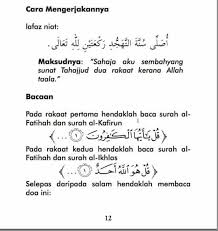 Cara Mengerjakannya
lafaz niat:
أُصَلِّى سُنَّةَ التَّهَجُّدِ رَكْعَتَيْنِ لِلَّهِ تَعَالَى.
Maksudnya: "Sahaja aku sembahyang
sunat Tahajjud dua rakaat kerana Allah
taala."
Bacaan
Pada rakaat pertama hendaklah baca surah al-
Fatihah dan surah al-Kafirun
﴿ قُلْ يَٰٓأَيُّهَا ٱلْكَٰفِرُونَ ١ ... ﴾
Pada rakaat kedua hendaklah baca surah al-
Fatihah dan surah al-Ikhlas
﴿ قُلْ هُوَ ٱللَّهُ أَحَدٌ ١ ... ﴾
Selepas daripada salam hendaklah membaca
doa ini:
12